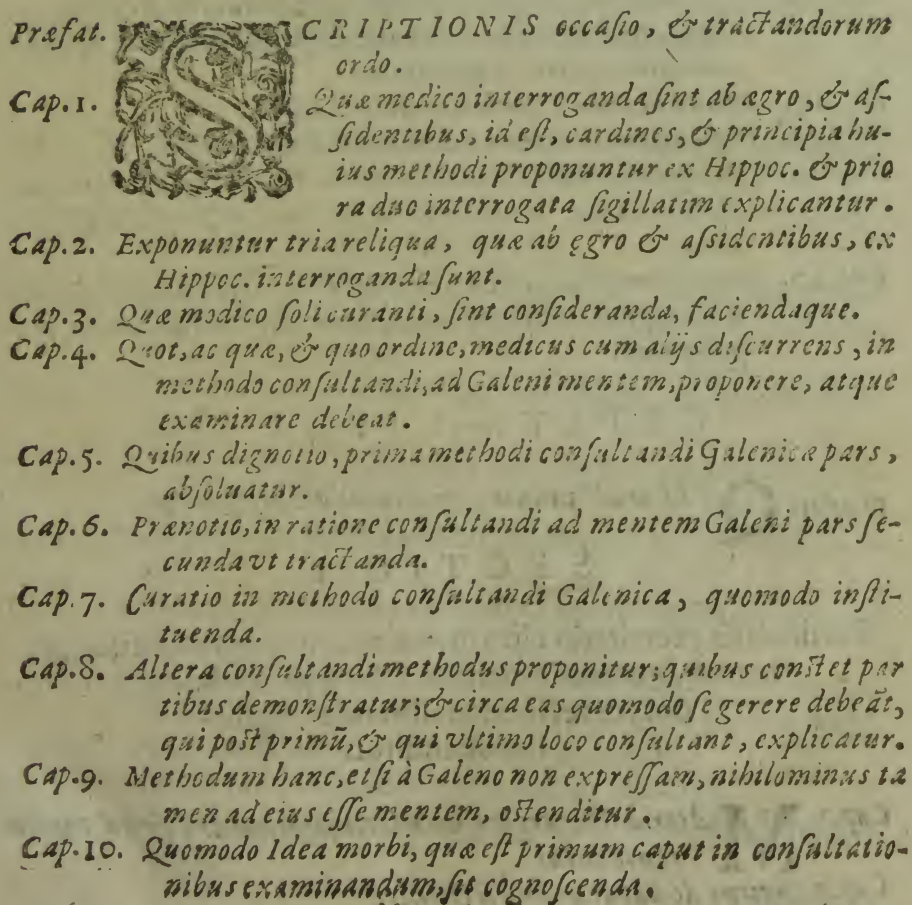 Præfat. SCRIPTIONIS occaſio, & tractandorum
ordo.
Cap.1. Quæ medico interroganda ſint ab ægro, & aſ-
ſidentibus, id eſt, cardines, & principia hu-
ius methodi proponuntur ex Hippoc. & prio
ra duo interrogata ſigillatim explicantur.
Cap.2. Exponuntur tria reliqua, quæ ab ęgro & aſsidentibus, ex
Hippoc. interroganda ſunt.
Cap.3. Quæ medico ſoli curanti, ſint conſideranda, faciendaque.
Cap.4. Quot, ac quæ, & quo ordine, medicus cum alijs diſcurrens, in
methodo conſultandi, ad Galeni mentem, proponere, atque
examinare debeat.
Cap.5. Quibus dignotio, prima methodi conſultandi Galenicæ pars,
abſoluatur.
Cap.6. Prænotio, in ratione conſultandi ad mentem Galeni pars ſe-
cunda vt tractanda.
Cap.7. Curatio in methodo conſultandi Galenica, quomodo inſti-
tuenda.
Cap.8. Altera conſultandi methodus proponitur; quibus conſtet par
tibus demonſtratur; & circa eas quomodo ſe gerere debeãt,
qui poſt primũ, & qui vltimo loco conſultant, explicatur.
Cap.9. Methodum hanc, etſi à Galeno non expreſſam, nihilominus ta
men ad eius eſſe mentem, oſtenditur.
Cap.10. Quomodo Idea morbi, quæ eſt primum caput in conſultatio-
nibus examinandum, ſit cognoſcenda.